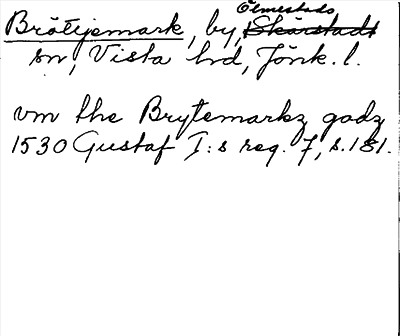 Brötjemark, by, Ölmestads
sn, Vista hd, Jönk. l.
vm the Brytemarkz godz
1530 Gustaf I:s reg. 7, s. 181.